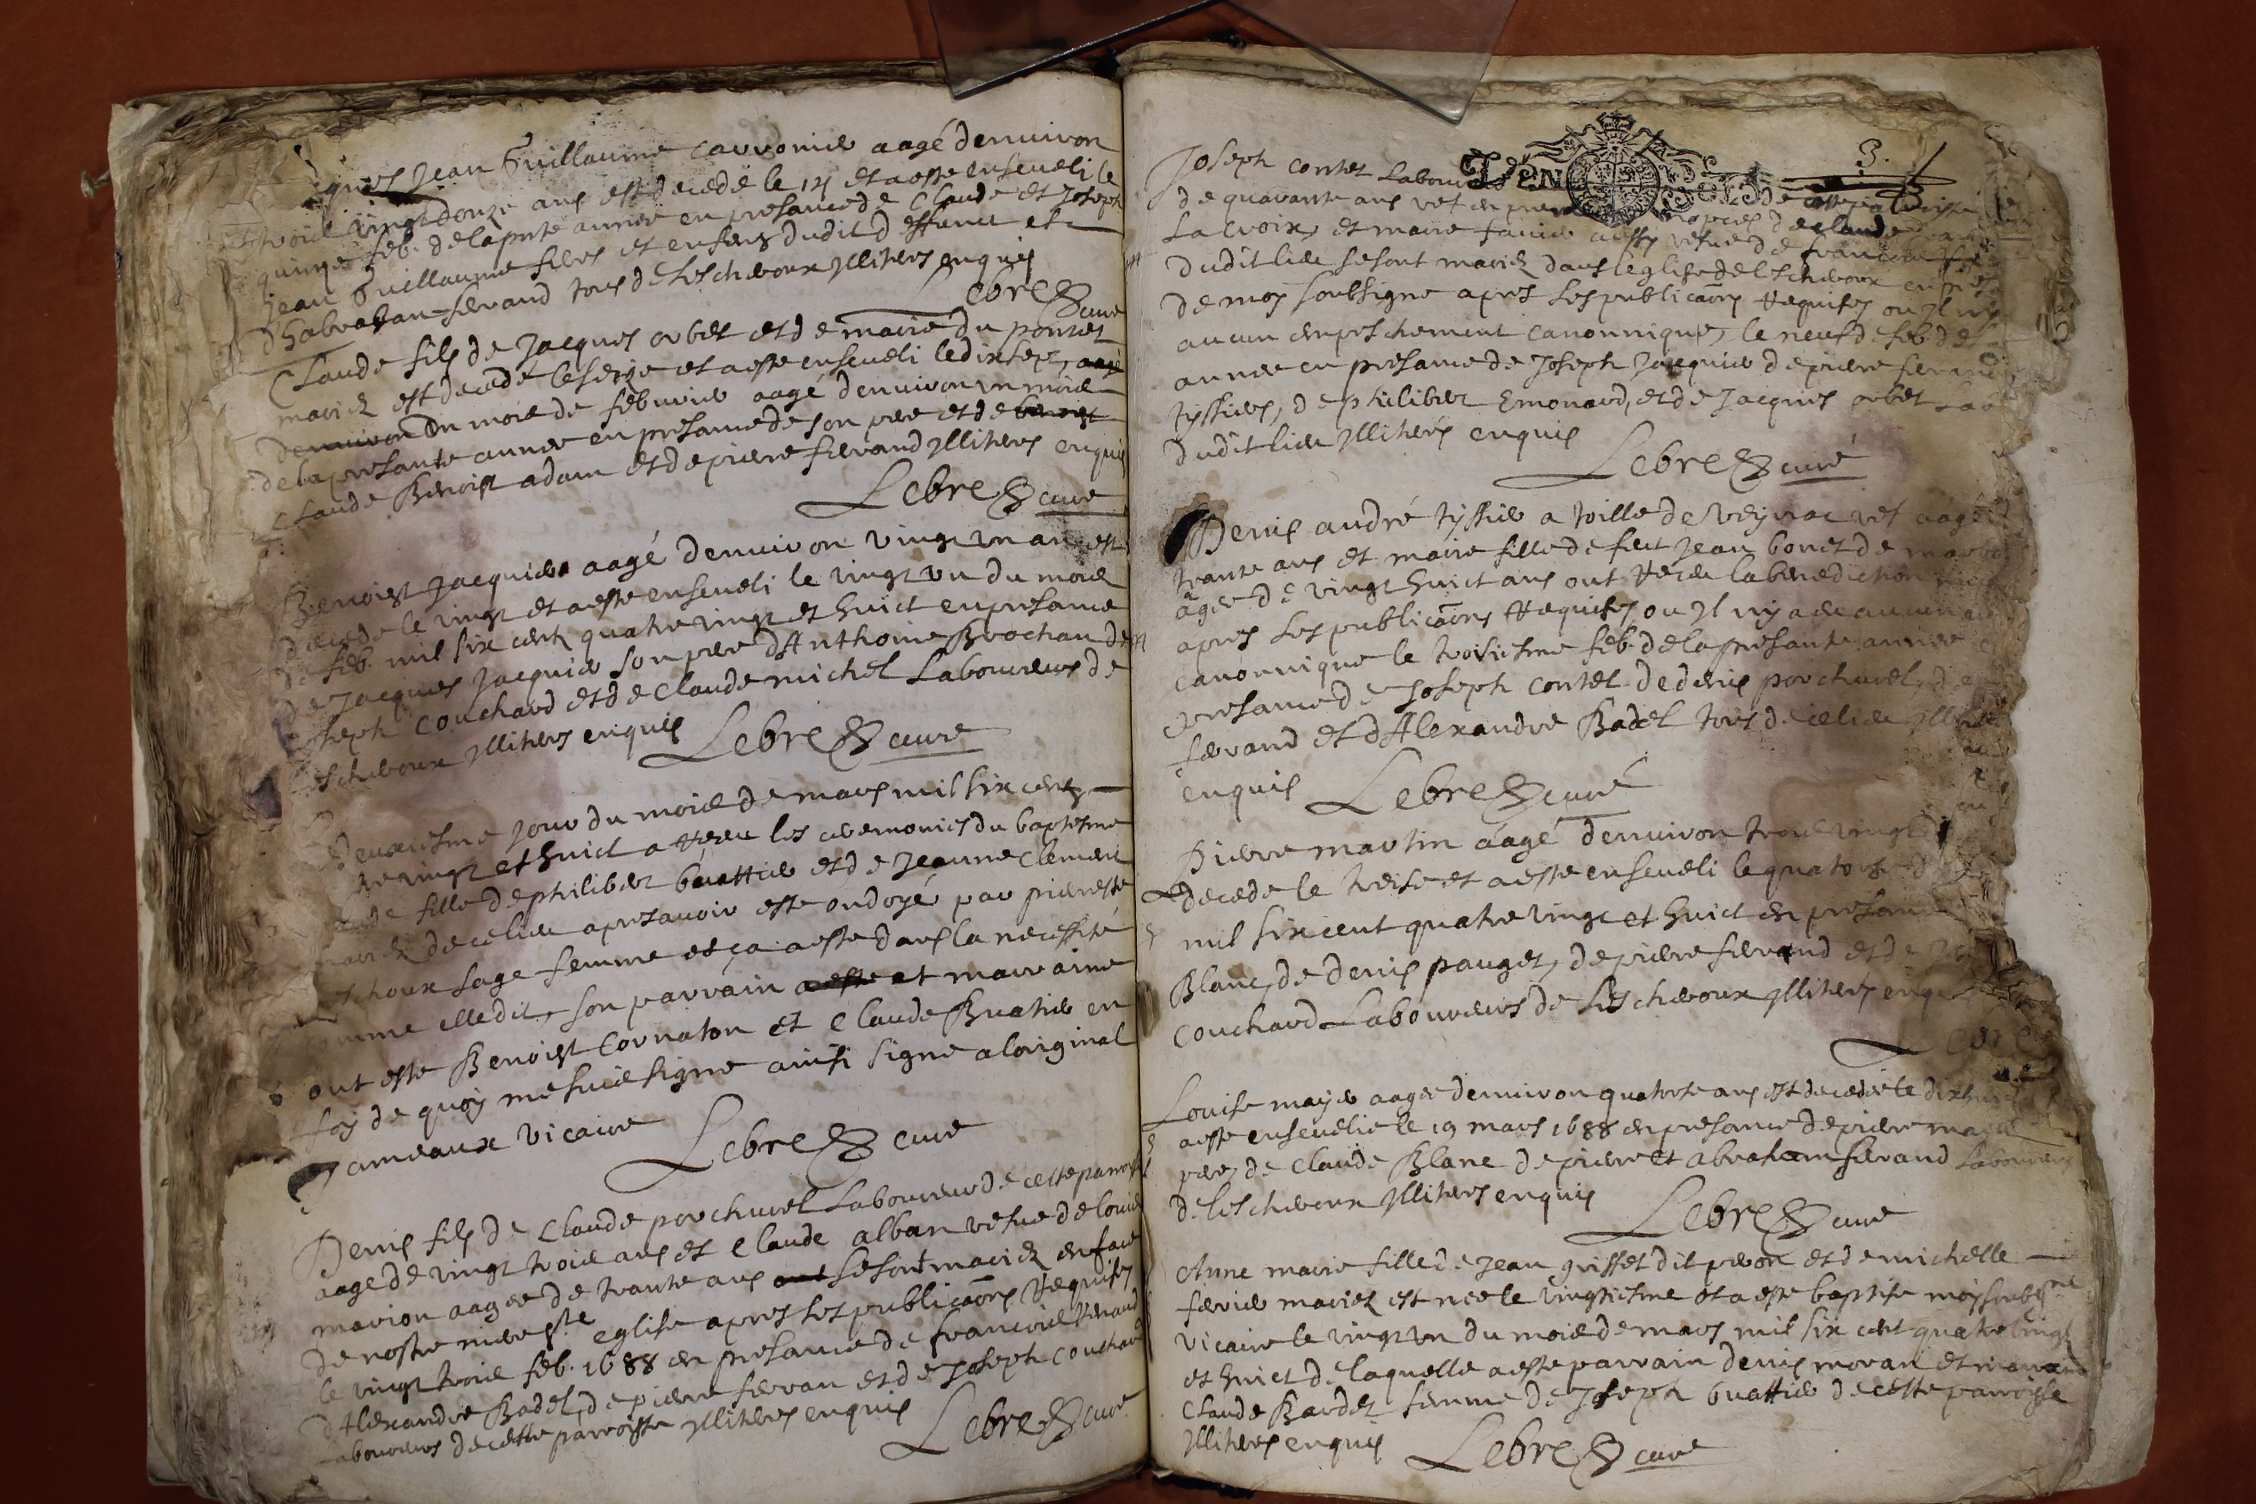 Jean Guillaume carronier aagé denuiron
trois vingt douze ans est decede le 14 et a este enseueli le
quinze feb. de la pnte année en presance de Claude et Joseph
Jean Guillaume freres et enfens dudit deffunct et
dhabraham feraud tous de Lescheroux Illiteres enquis
Lebrez cure
Claude fils de Jacques orbet et de marie du poncet
mariez est decede le seize et a este enseueli le dixsept
denuiron un mois de februier aagé denuiron un mois
de la presante annee en presance de son pere et de
Claude Benoist adam et de pierre feraud Illiteres enquis
Lebrez cure
Benoist Jacquier aagé denuiron vingt un an est
decede le vingt et a este enseueli le vingt un du mois
de feb. mil six cent quatre vingt et huict en presance
de Jacques Jacquier son pere dAnthoine Brochan de
Joseph Couchard et de Claude michel Laboureurs de
Lescheroux Illiteres enquis
Lebrez cure
deuxiesme jour du mois de mars mil six cent
vingt et huict a receu les ceremonies du baptesme
fille de philibert buattier et de Jeanne Clement
mariez de ce lieu apres auoir este ondoyé par pierrette
sage femme et ça a este dans la necessité
comme elle dit, son parrain et marraine
ont este Benoist Cornaton et Claude Buatier en
foy de quoy me suis signe ainsi signe a loriginal
Jameaux vicaire
Lebrez cure
Denis fils de Claude porchurel Laboureur de cette parroisse
aage de vingt trois ans et Claude alban vefue de louis
marion aagee de trante ans se sont mariez en face
de nostre mere ste eglise apres les publicaons requises
le vingt trois feb. 1688 en presance de francois feraud
dAlexandre Badel, de pierre ferau et de Joseph couchard
laboureurs de cette parroisse Illiteres enquis
Lebrez cure
3.
Joseph contet Laboureur de cette parroisse
de quarante ans vef en premieres nopces de claude
La Croix, et marie fauier aussy vefue de francois
dudit lieu se sont mariez dans leglise de lescheroux en
de moy soubsigne apres les publicaons requises ou Il ny
aucun empeschement canonnique, le neuf de feb. de
annee en presance de Joseph Jacquier de pierre feraud
tyssiers, de philibert Emonard, et de Jacques orbet Lab
dudit lieu Illiteres enquis
Lebrez curé
Denis andré tyssier a toille de Veynac vef aagé
trante ans et marie fille de feu Jean bonet de
agée de vingt huict ans ont receu la benediction
apres les publicaons requises, ou Il ny a eu aucun
canonnique le troisiesme feb. de la presante annee
presance de Joseph contet de denis porchurel, de
feraud et dAlexandre Badel tous de ce lieu
enquis
Lebrez curé
Pierre martin aagé denuiron trois vingt
decede le treise et a este enseueli le quatorze
mil six cent quatre vingt et huict en presance
Blanc, de denis pauget, de pierre feraud et de
couchard Laboureurs de Lescheroux Illiteres
Louise mayer aagee denuiron quatorse ans est decedée le dixhuict
a este enseuelie le 19 mars 1688 en presance de pierre
pere, de Claude Blanc de pierre et abraham feraud Laboureurs
de lescheroux Illiteres enquis
Lebrez cure
Anne marie fille de Jean griffet dit peron et de michelle
ferier mariez est nee le vingtiesme et a este baptise
vicaire le vingt un du mois de mars mil six cent quatre vingt
et huict de laquelle a este parrain denis moran et marraine
Claude Bardet femme de Joseph buattier de cette parroisse
Illiteres enquis
Lebrez cure